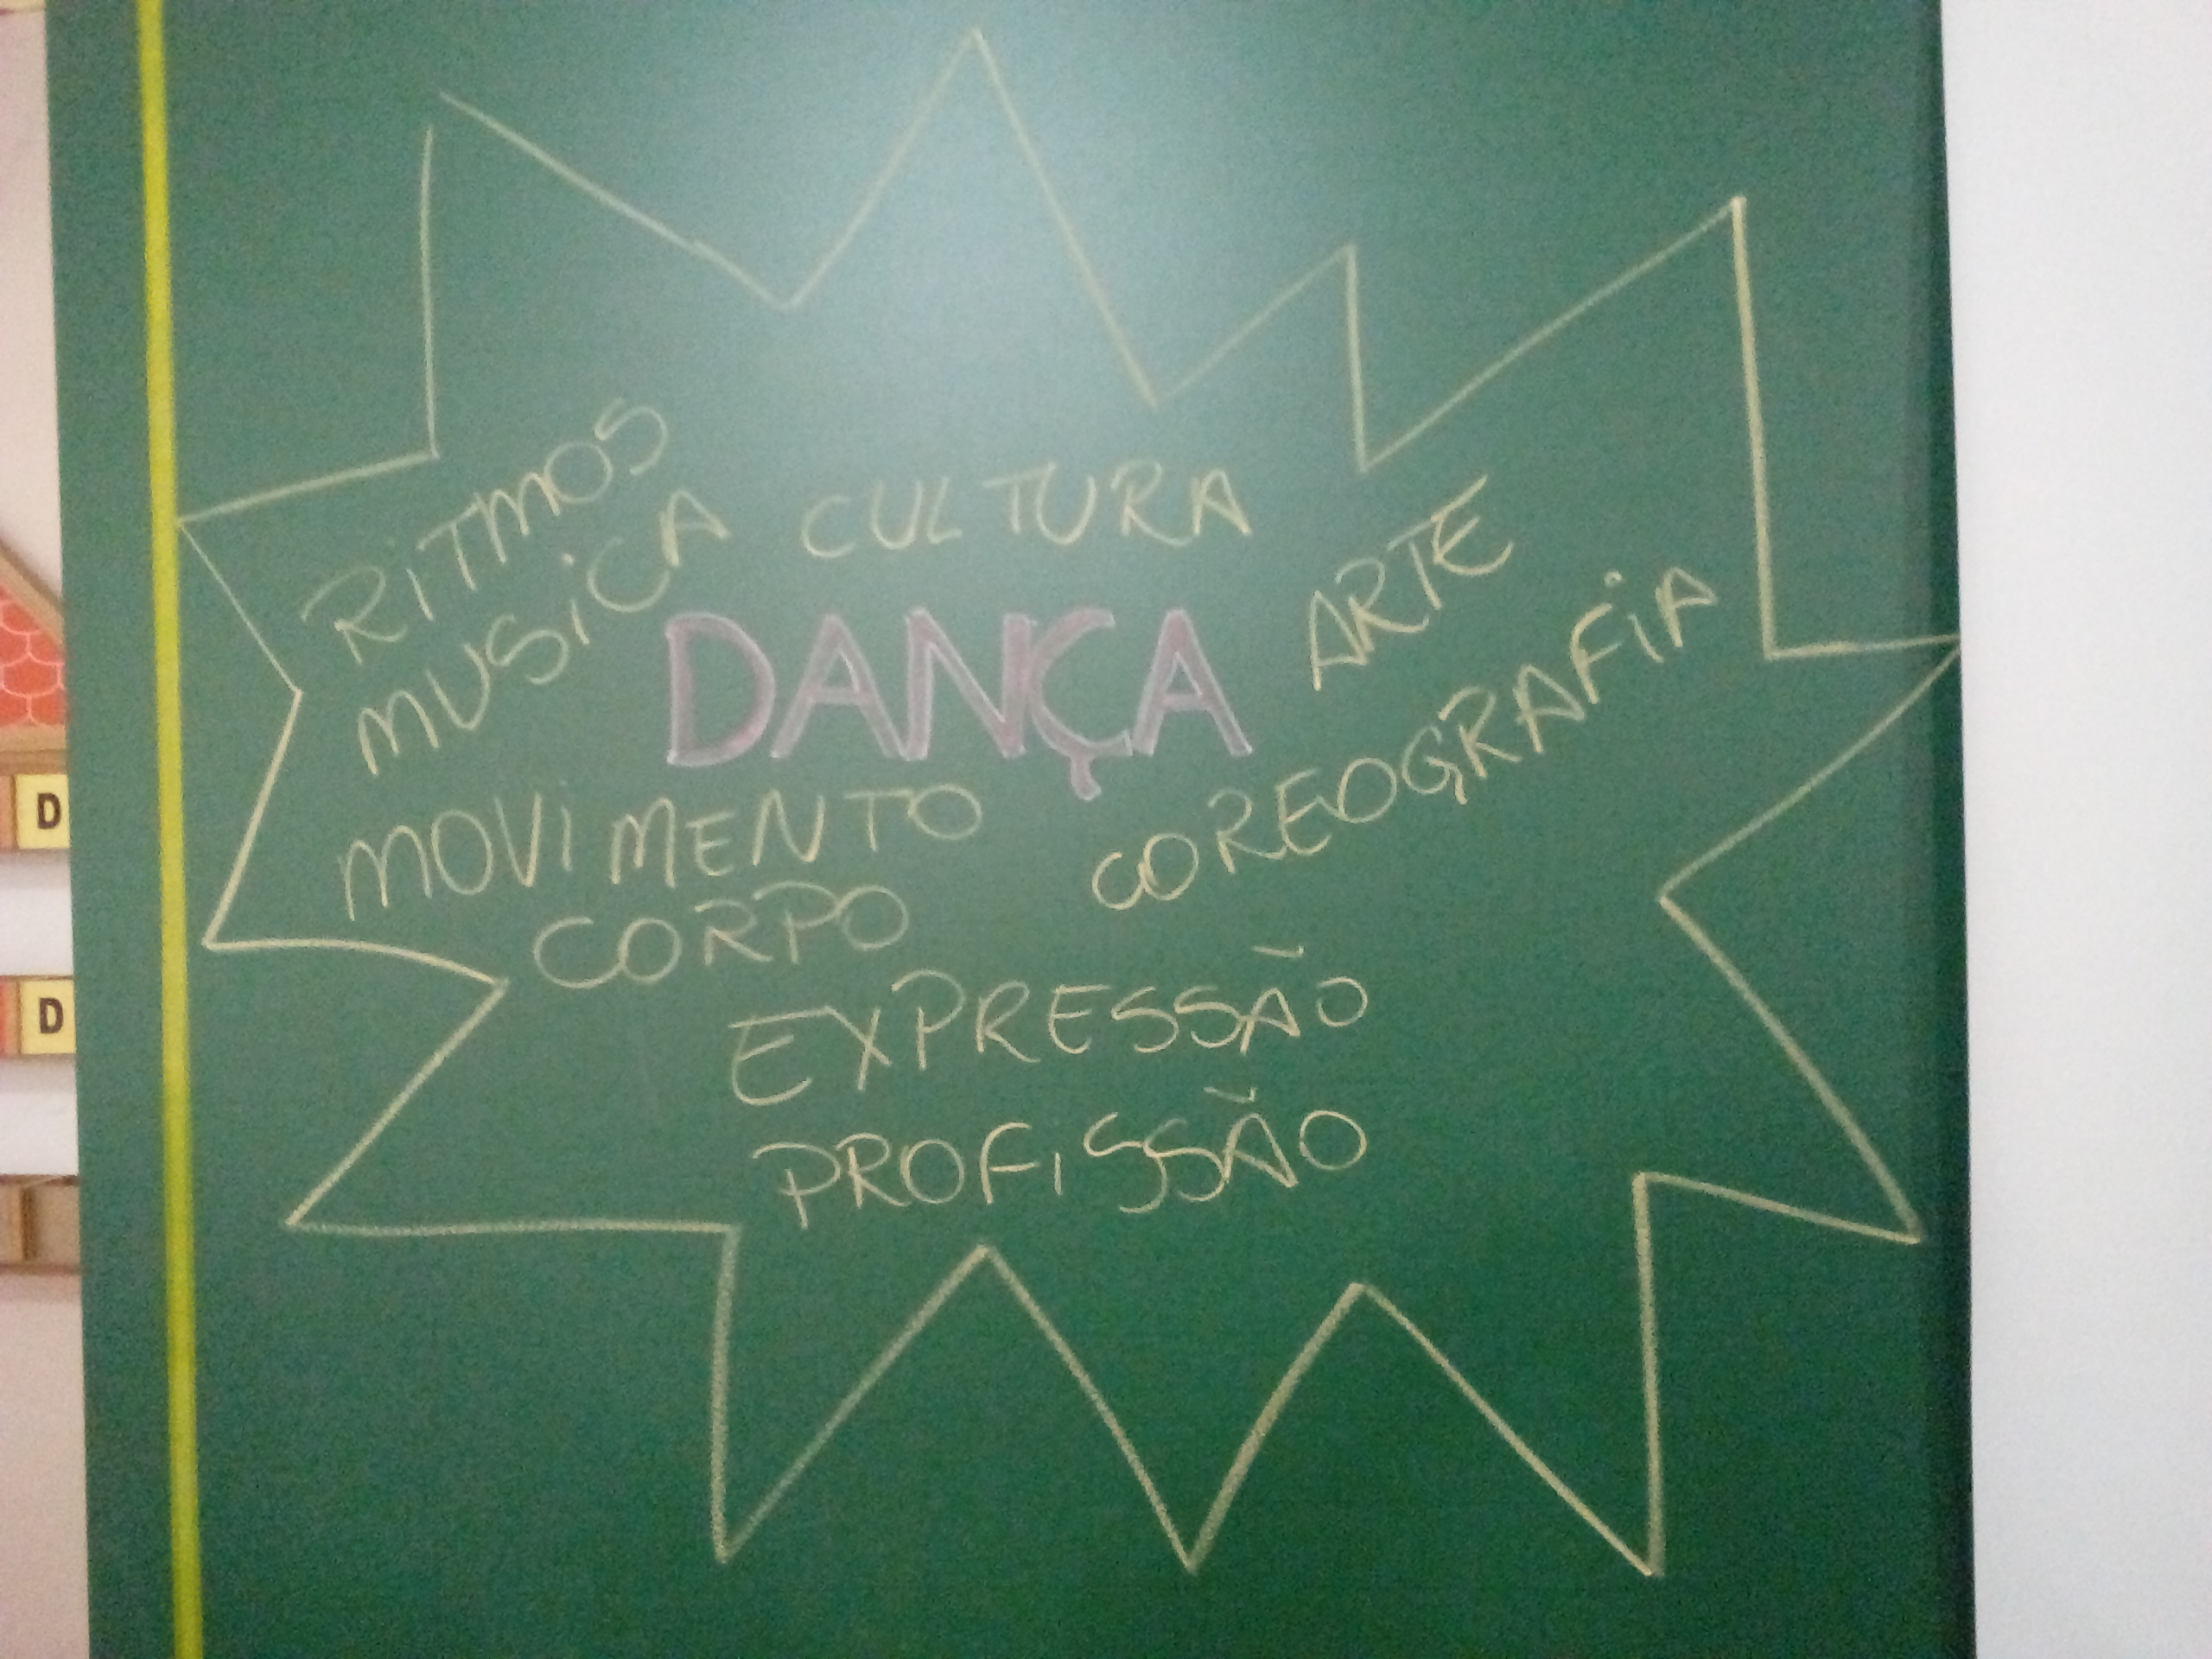 RiTMOS
MUSiCA
CULTURA
DANÇA
ARTE
COREOGRAFiA
MOVIMENTO
CORPO
EXPRESSÃO
PROFISSÃO
D
D